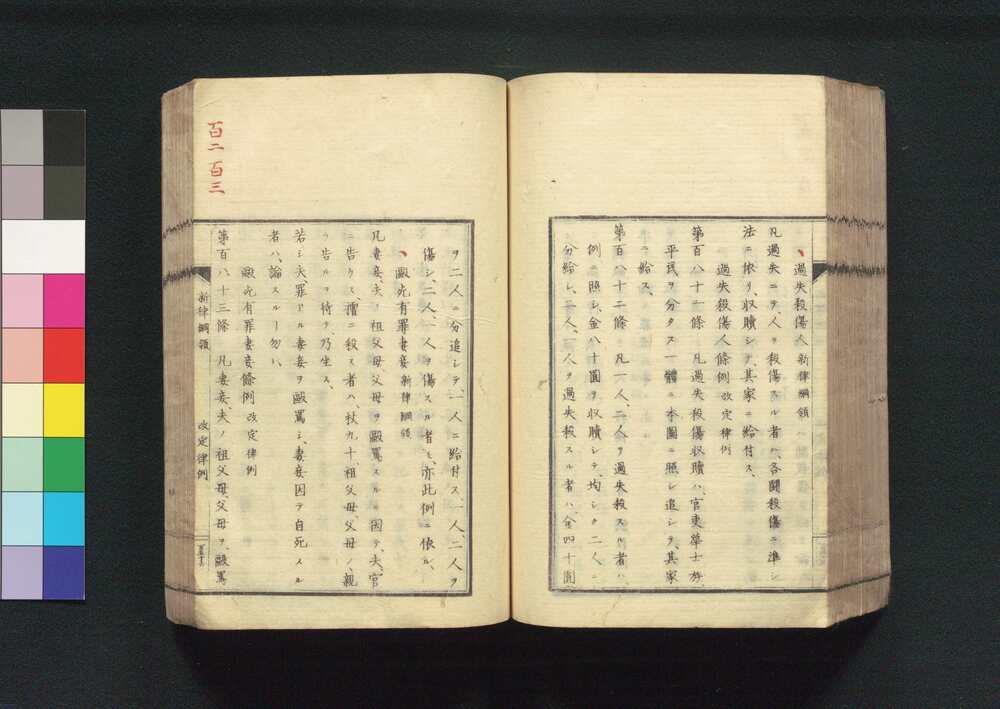 過失殺傷人 新律綱領
凡過失ニテ、人ヲ殺傷スル者ハ、各鬪殺傷ニ準シ
法ニ依リ収贖シテ、其家ニ給付ス、
過失殺傷人條例 改定律例
第百八十一條 凡過失殺傷収贖ハ、官吏華士族
平民ヲ分タス一體ニ本圖ニ照シ追シテ、其家
ニ給ス、
第百八十二條 凡一人、二人ヲ過失殺スル者ハ、
例ニ照シ、金八十圓ヲ収贖シテ、均シク二人ニ
分給シ、二人、一人ヲ過失殺スル者ハ、金四十圓
ヲ二人ニ分追シテ、一人ニ給付ス、一人、二人ヲ
傷シ、二人、一人ヲ傷スル者モ、亦此例ニ依ル、
毆死有罪妻妾 新律綱領
凡妻妾、夫ノ祖父母父母ヲ毆罵スルニ因テ、夫、官
ニ告ケス、擅ニ殺ス者ハ、杖九十、祖父母父母ノ、親
ラ告ルヲ待テ、乃坐ス、
若シ夫、罪アル妻妾ヲ毆罵シ、妻妾因テ自死スル
者ハ、論スルヿ勿レ、
毆死有罪妻妾條例 改定律例
第百八十三條 凡妻妾、夫ノ祖父母父母ヲ、毆罵
新律綱領 改定律例
百二 百三